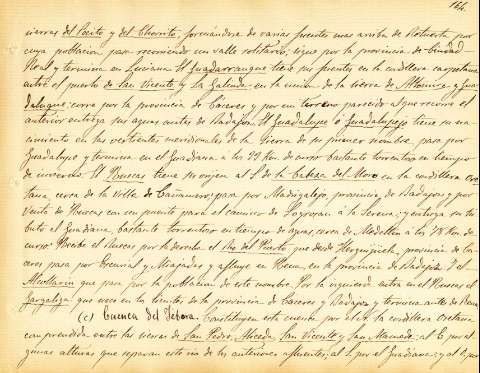 164.
sierras del Puerto y del Chorrito, formándose de varias fuentes mas arriba de Retuerta por
cuya poblacion pasa recorriendo un valle solitario; sigue por la provincia de Ciudad
Real y termina en Luciana. El Guadarranque tiene sus fuentes en la cordillera carpetana
entre el puerto de San Vicente y la en la union de la sierra de Altamira y Gua-
dalupe; corre por la provincia de Cáceres y por un terreno parecido al que recorre el
anterior entrega sus aguas antes de Badajoz. El Guadalupe ó Guadalupejo tiene su na-
cimiento en las vertientes meridionales de la sierra de su primer nombre, pasa por
Guadalupe y termina en el Guadiana á los 99 Km de curso bastante torrentoso en tiempo
de invierno. El Ruecas tiene su origen al S de la Cabeza del Moro en la cordillera Ore-
tana, cerca de la villa de Cañamero; pasa por Madrigalejo, provincia de Badajoz y por
Venta de Ruecas con un puente para el camino de Logrosan á la Serena; y entrega su tri-
buto al Guadiana, bastante torrentoso en tiempo de aguas, cerca de Medellin á los 78 Km de
curso. Recibe el Ruecas por la derecha el Rio del Puerto, que desde Herguijuela, provincia de Cá-
ceres pasa por Escurial y Miajadas y afluye en Rena, en la provincia de Badajoz y el
Alcollarin que pasa por la poblacion de este nombre. Por la izquierda entra en el Ruecas el
Gargaliza que nace en los límites de la provincia de Cáceres y Badajoz y termina antes de Rena.
(c) Cuenca del Zapara. Constituyen esta cuenca por el N. la cordillera Oretana
comprendida entre las sierras de San Pedro, San Vicente y San Mamede; al E. por al-
gunas alturas que separan este rio de los anteriores afluentes; al S. por el Guadiana; y al O. por